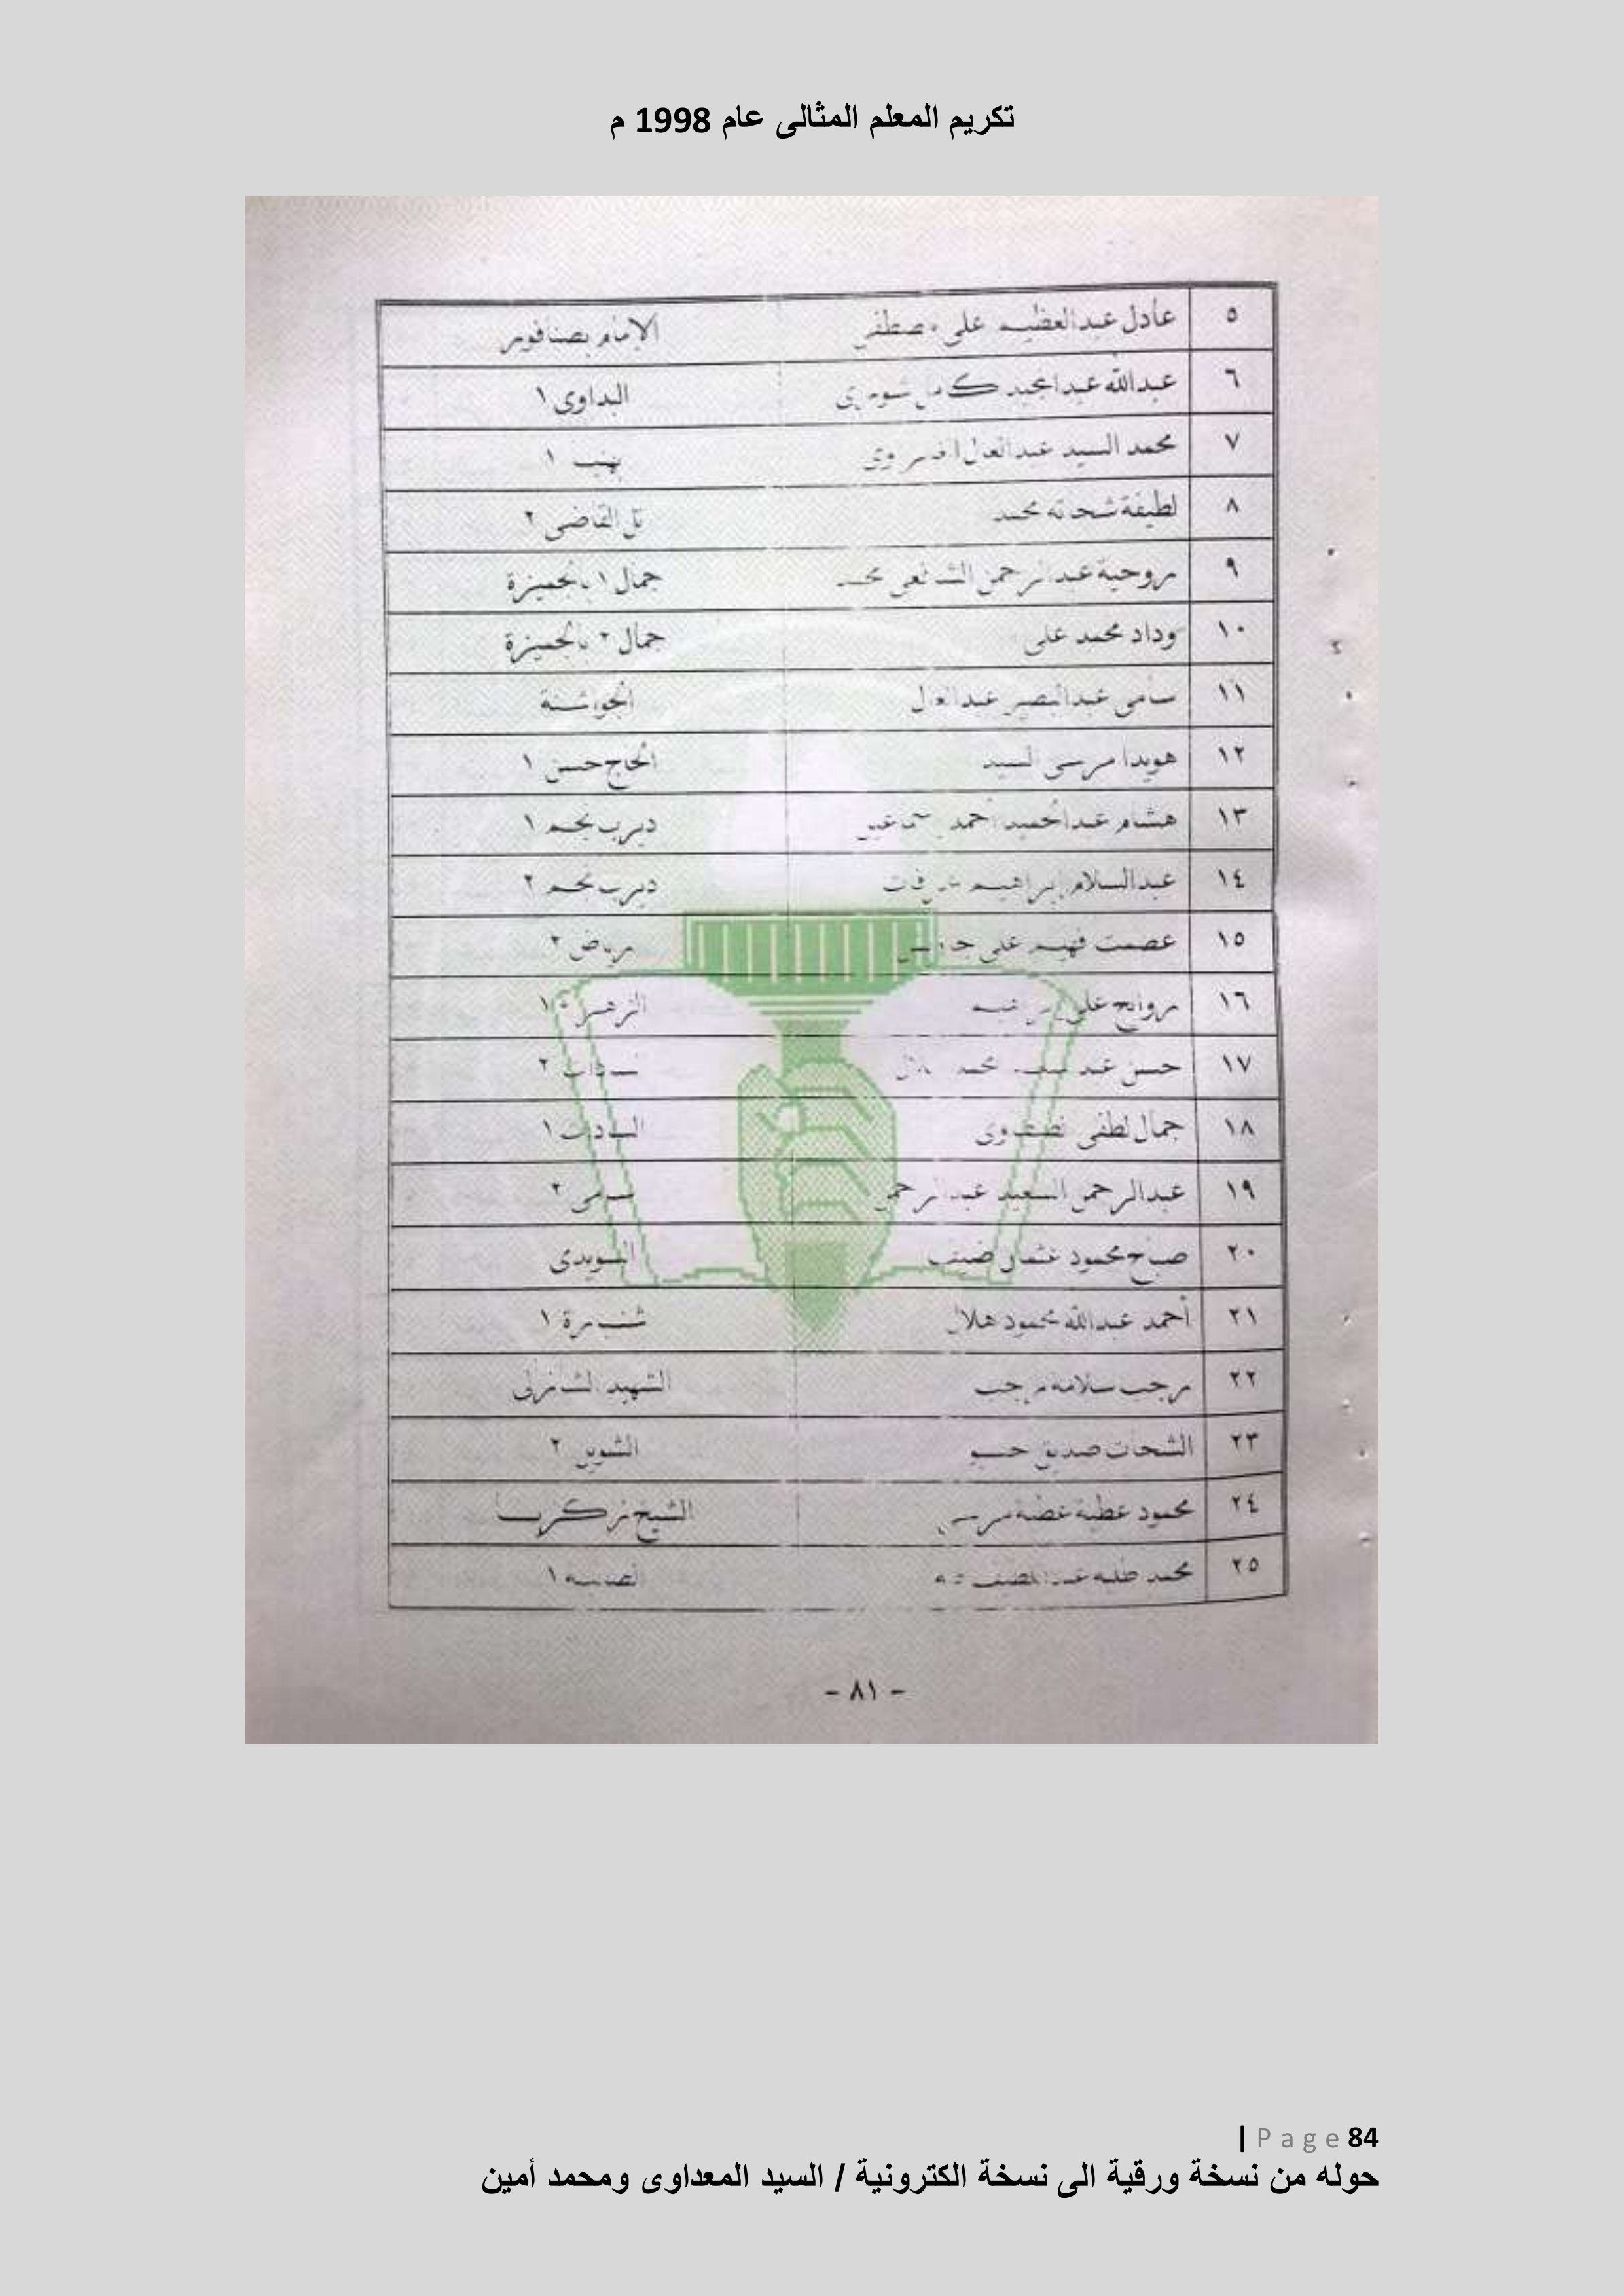 تكريم المعلم المثالى عام 1998 م
٥ عادل عبدالعظيم على مصطفى الإمام بصنافور
٦ عبدالله عبدالمجيد كامل البداوى ١
٧ محمد السيد عبدالعال ١
٨ لطيفة شحاته محمد تل القاضى ٢
٩ روحية عبدالرحمن الشافعى محمد جمال ١ بالجميزة
١٠ وداد محمد على جمال ٢ بالجميزة
١١ سامى عبدالبصير عبدالعال الجواشنة
١٢ هويدا مرسى السيد الحاج حسن ١
١٣ هشام عبدالحميد أحمد ديرب نجم ١
١٤ عبدالسلام إبراهيم ديرب نجم ٢
١٥ عصمت فهيم على رياض ٢
١٦ روايح على ١
١٧ حسن محمد السادات ٢
١٨ جمال لطفى السادات ١
١٩ عبدالرحمن السعيد عبدالرحمن ٢
٢٠ صباح محمود عثمان ضيف السويدى
٢١ أحمد عبدالله محمود هلال ١
٢٢ رجب سلامه رجب الشهيد
٢٣ الشحات صديق ٢
٢٤ محمود عطية عطية مرسى الشيخ زكريا
٢٥ محمد ١
- ٨١ -
| Page 84
حوله من نسخة ورقية الى نسخة الكترونية / السيد المعداوى ومحمد أمين